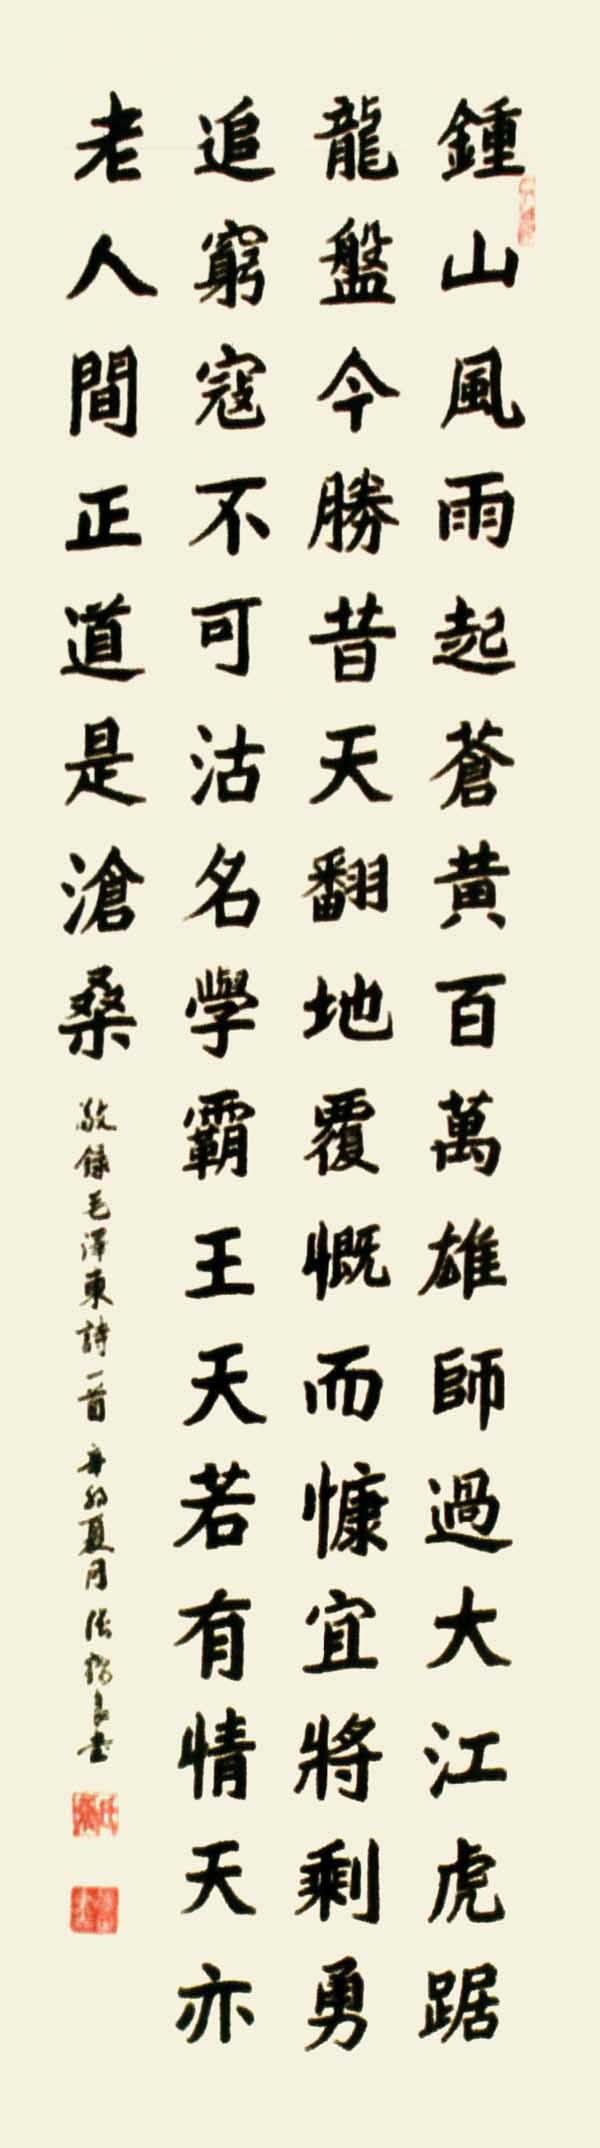 鍾山風雨起蒼黃百萬雄師過大江虎踞
龍盤今勝昔天翻地覆慨而慷宜將剩勇
追窮寇不可沽名學霸王天若有情天亦
老人間正道是滄桑
敬錄毛澤東詩一首 辛卯夏月